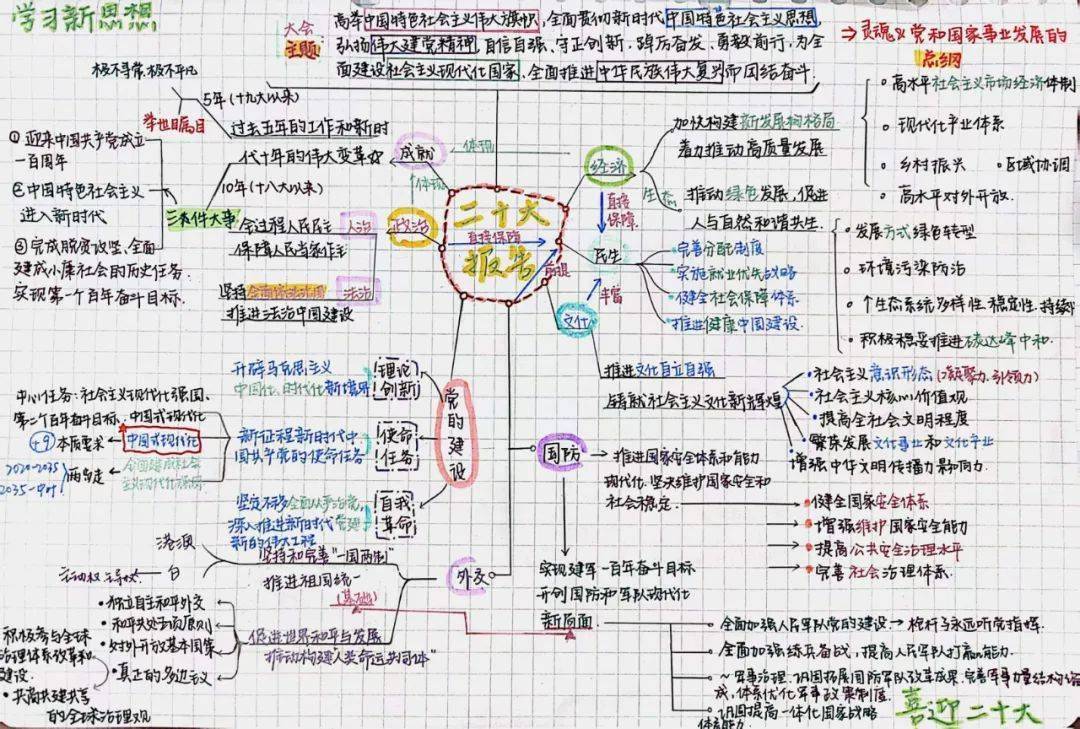 学习新思想
大会
主题:
高举中国特色社会主义伟大旗帜,全面贯彻新时代中国特色社会主义思想,
弘扬伟大建党精神,自信自强、守正创新,踔厉奋发、勇毅前行,为全
面建设社会主义现代化国家、全面推进中华民族伟大复兴而团结奋斗.
极不寻常,极不平凡
5年(十九大以来)
举世瞩目
过去五年的工作和新时
代十年的伟大变革
10年(十八大以来)
三大件大事
① 迎来中国共产党成立
一百周年
②中国特色社会主义
进入新时代
③完成脱贫攻坚、全面
建成小康社会的历史任务.
实现第一个百年奋斗目标.
成就
体现
体现
政治
全过程人民民主 人治
保障人民当家作主
坚持全面依法治国 法治
推进法治中国建设
二十大
直接保障
报告
前提
经济
加快构建新发展格局
着力推动高质量发展
生态
推动绿色发展,促进
人与自然和谐共生.
直接
保障.
民生
丰富
文化
完善分配制度
实施就业优先战略
健全社会保障体系
推进健康中国建设.
⇒灵魂 党和国家事业发展的
总纲
高水平社会主义市场经济体制
现代化产业体系
乡村振兴 •区域协调
高水平对外开放.
发展方式绿色转型
环境污染防治
个生态系统多样性 稳定性.持续
积极稳妥推进碳达峰中和.
推进文化自立自强
铸就社会主义文化新辉煌
社会主义意识形态(凝聚力、引领力)
社会主义核心价值观
提高全社会文明程度
繁荣发展文化事业和文化产业
增强中华文明传播力影响力.
党的建设
理论
创新
开辟马克思主义
中国化、时代化新境界
使命
任务
新征程新时代中
国共产党的使命任务
自我
革命
坚定不移全面从严治党,
深入推进新时代党建
新的伟大工程
中心任务:社会主义现代化强国.
第二个百年奋斗目标、中国式现代化
+9 本质要求 中国式现代化
2020-2035
2035-中叶
两步走
全面建成社会
主义现代化强国
国防
推进国家安全体系和能力
现代化.坚决维护国家安全和
社会稳定.
健全国家安全体系
增强维护国家安全能力
提高公共安全治理水平
完善社会治理体系.
实现建军一百年奋斗目标
开创国防和军队现代化
新局面
全面加强人民军队党的建设→枪杆子永远听党指挥.
全面加强练兵备战,提高人民军队打赢能力.
~军事治理.巩固拓展国防军队改革成果.完善军事力量结构
成,体系优化军事政策制度.
巩固提高一体化国家战略
体系能力
外交
港澳
主动权 主导权 台
坚持和完善"一国两制"
推进祖国统一
(基础)
促进世界和平与发展
推动构建人类命运共同体"
独立自主和平外交
和平共处五项原则
对外开放基本国策
真正的多边主义
积极参与全球
治理体系改革和
建设.
共商共建共享
的全球治理观
喜迎二十大